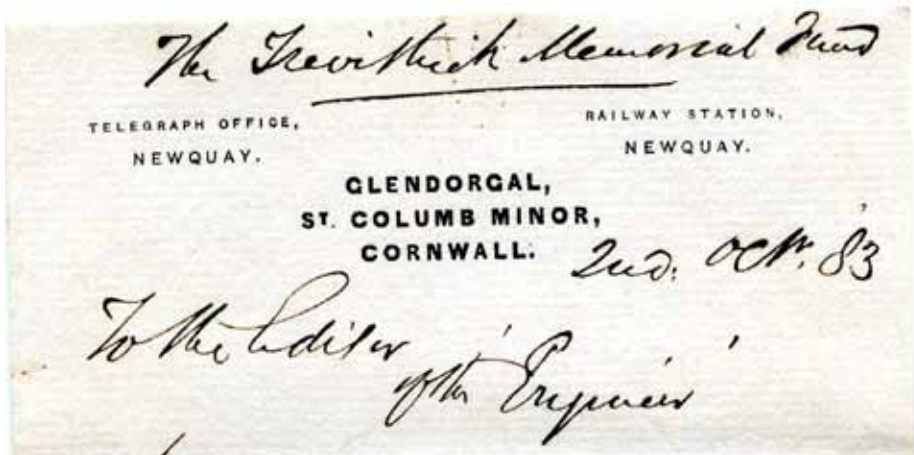 The Trevithick Memorial Fund
TELEGRAPH OFFICE,
NEWQUAY.
RAILWAY STATION,
NEWQUAY.
GLENDORGAL,
ST. COLUMB MINOR,
CORNWALL.
2nd. Octr. '83
To the Editor
of the 'Engineer'